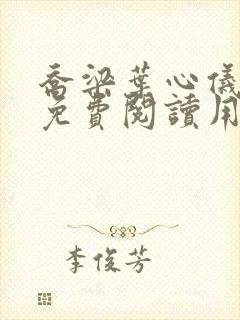 喬梁葉心儀
免費閱讀用
李俊芳